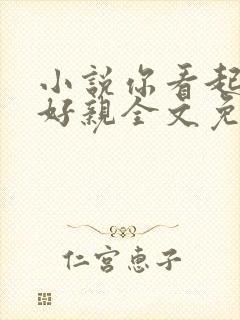 小說你看起
好親全文免
仁宮惠子